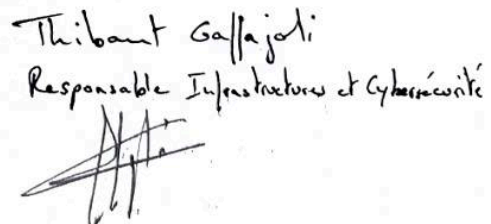 Thibaut Gaffajoli
Responsable Infrastructures et Cybersécurité